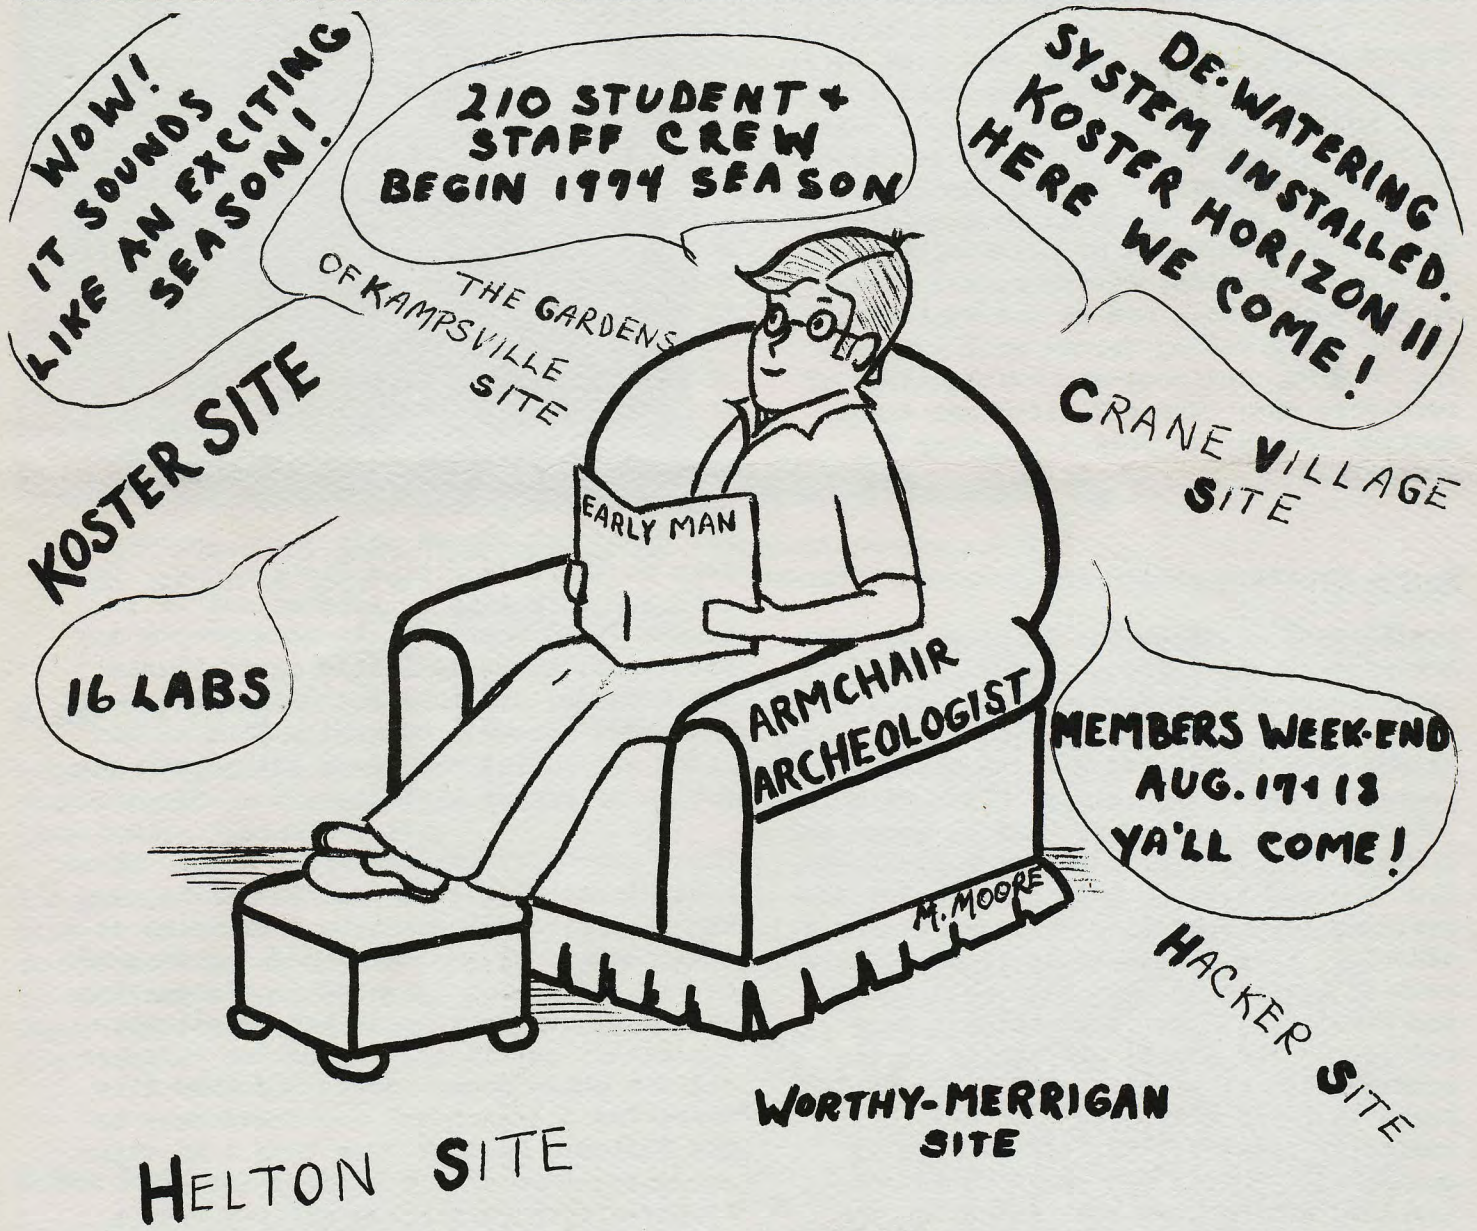 WOW!
IT SOUNDS
LIKE AN EXCITING
SEASON!
210 STUDENT +
STAFF CREW
BEGIN 1974 SEASON
DE-WATERING
SYSTEM INSTALLED.
KOSTER HORIZON 11
HERE WE COME!
THE GARDENS
OF KAMPSVILLE
SITE
KOSTER SITE
CRANE VILLAGE
SITE
EARLY MAN
16 LABS
ARMCHAIR
ARCHEOLOGIST
MEMBERS WEEK-END
AUG. 17 + 18
YA'LL COME!
M. MOORE
HACKER SITE
WORTHY-MERRIGAN
SITE
HELTON SITE